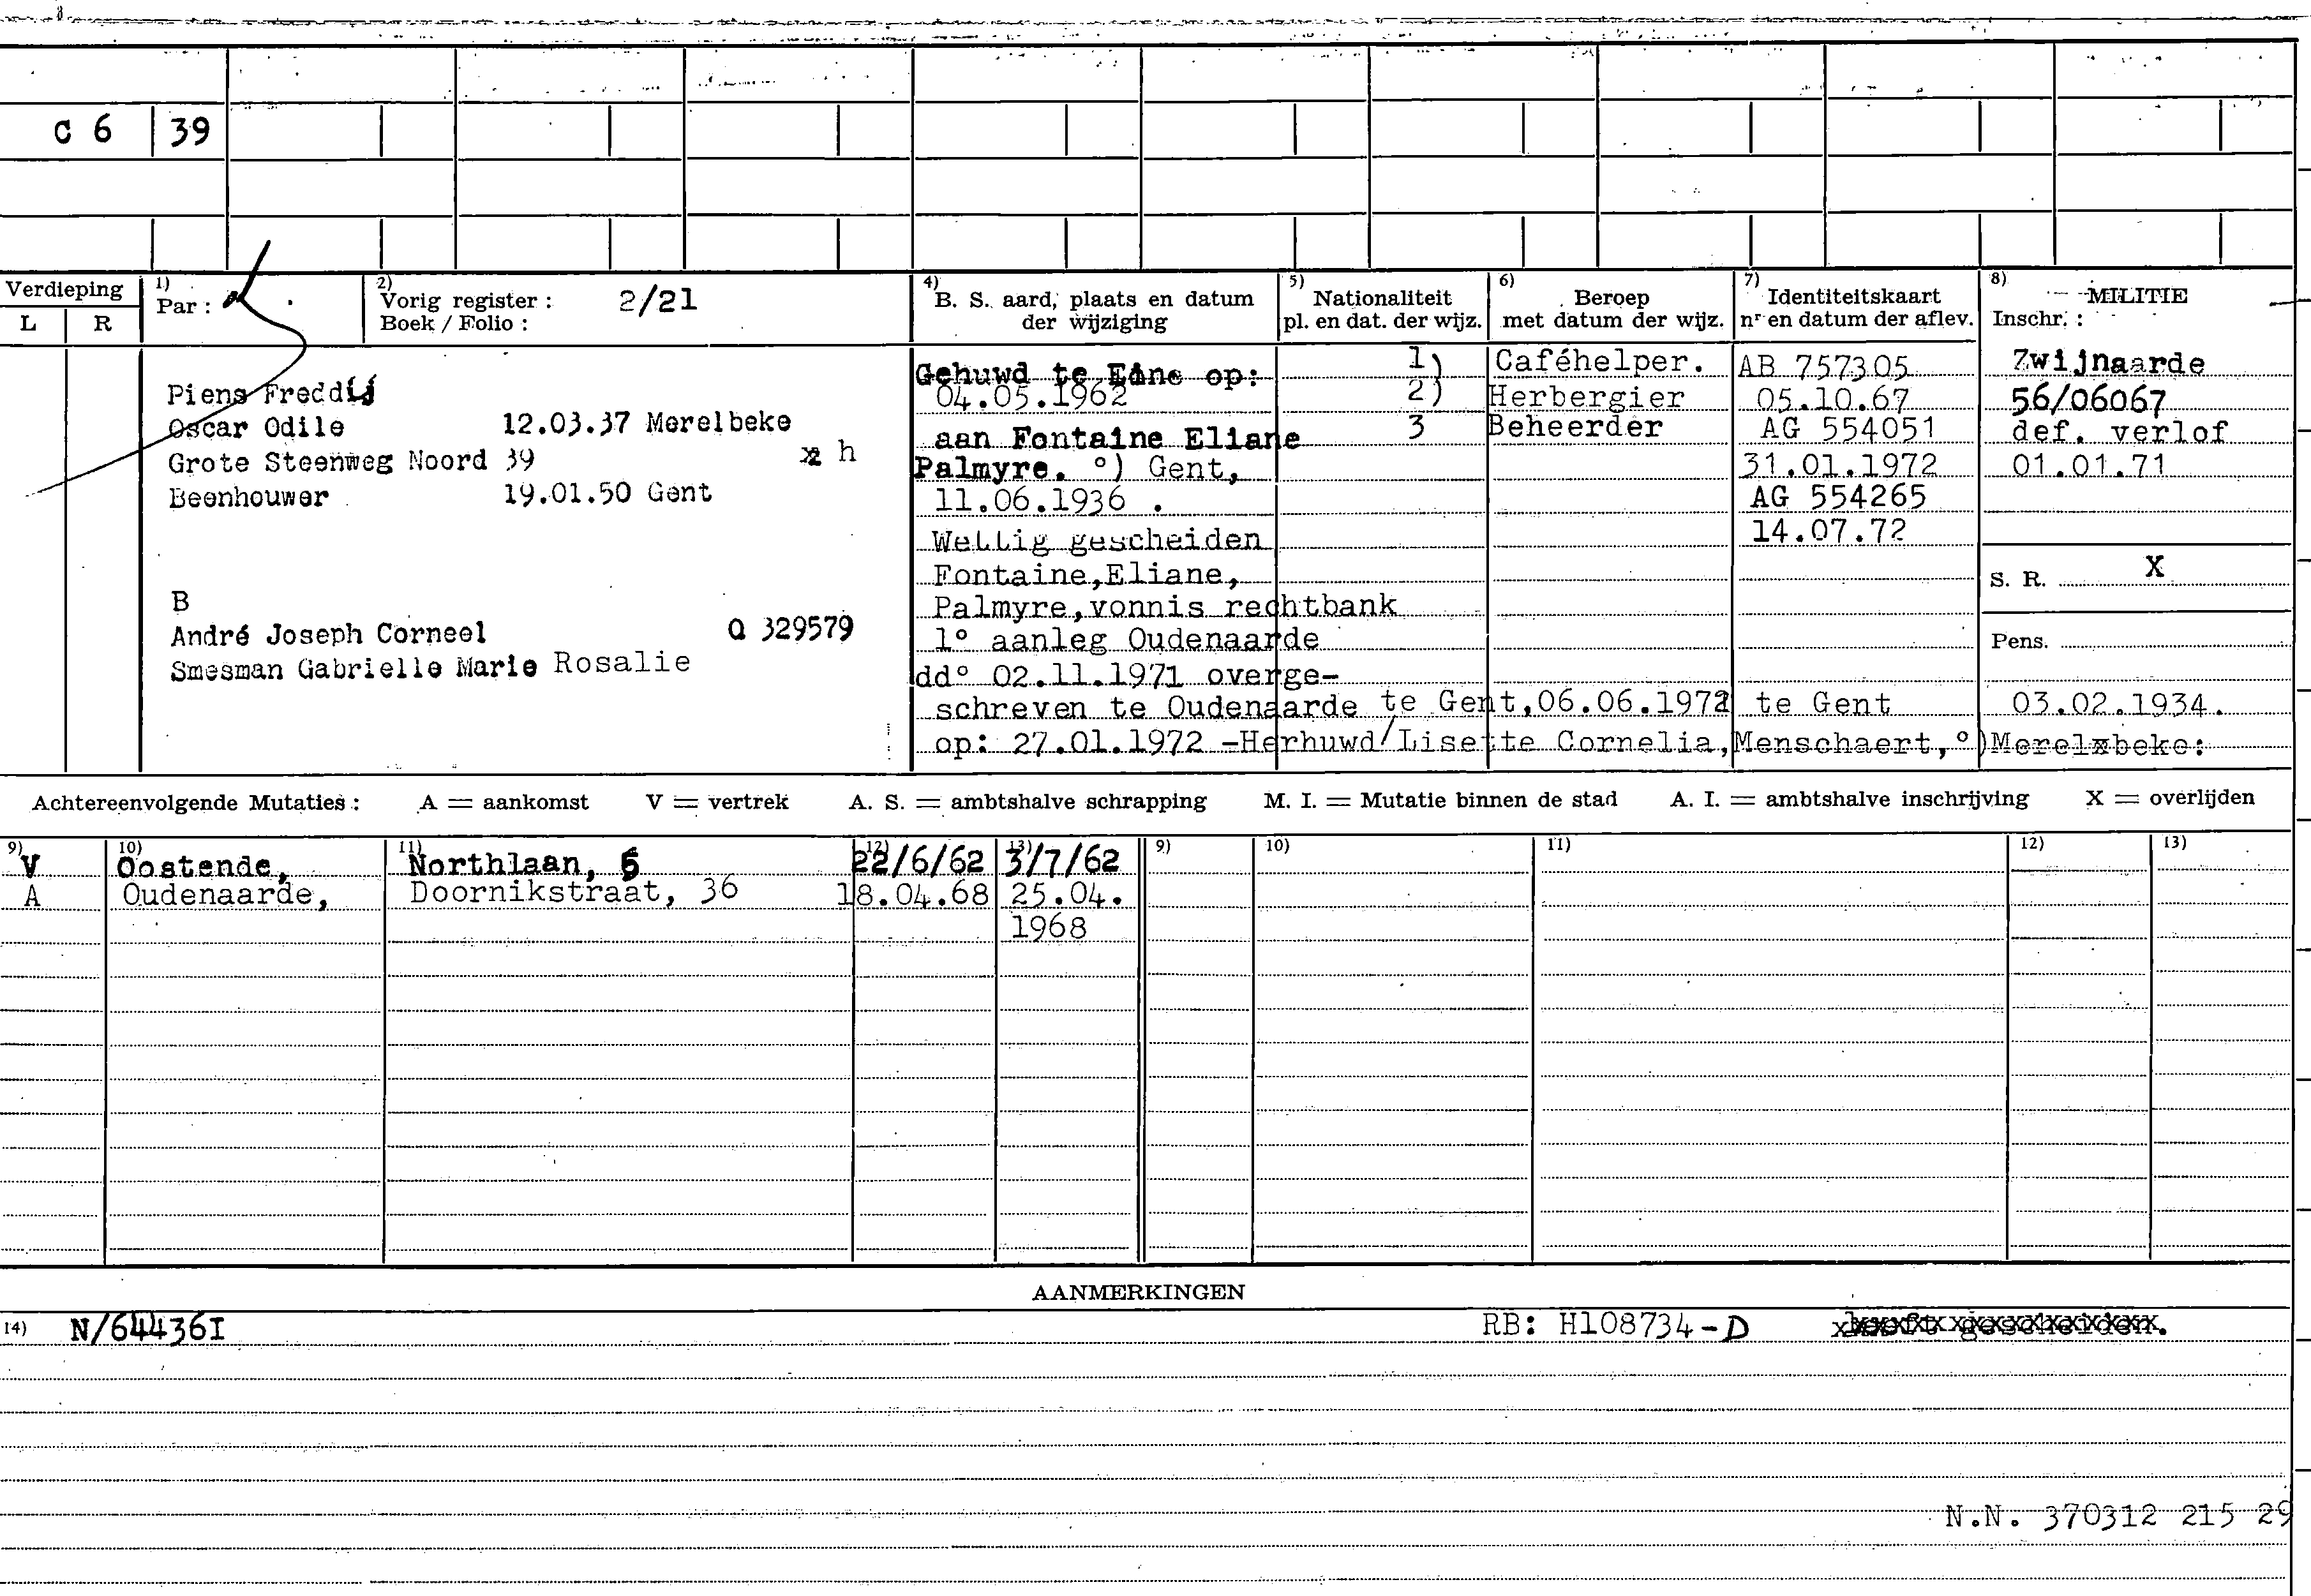 C 6 39
Verdieping
L R
1) Par :
2) Vorig register : 2/21
Boek / Folio :
4) B. S. aard, plaats en datum
der wijziging
5) Nationaliteit
pl. en dat. der wijz.
6) Beroep
met datum der wijz.
7) Identiteitskaart
nr en datum der aflev.
8) MILITIE
Inschr. :
Piens Freddij
Oscar Odile 12.03.37 Merelbeke
Grote Steenweg Noord 39 h
Beenhouwer 19.01.50 Gent
B
André Joseph Corneel Q 329579
Smesman Gabrielle Marie Rosalie
Gehuwd te Eine op:
04.05.1962
aan Fontaine Eliane
Palmyre. °) Gent,
11.06.1936 .
Wettig gescheiden
Fontaine,Eliane,
Palmyre,vonnis rechtbank
1° aanleg Oudenaarde
dd° 02.11.1971 overge-
schreven te Oudenaarde te Gent,06.06.1972 te Gent 03.02.1934.
op: 27.01.1972 -Herhuwd/Lisette Cornelia,Menschaert,°)Merelbeke:
1) Caféhelper.
2) Herbergier
3 Beheerder
AB 757305
05.10.67
AG 554051
31.01.1972
AG 554265
14.07.72
Zwijnaarde
56/06067
def. verlof
01.01.71
S. R. X
Pens.
Achtereenvolgende Mutaties : A = aankomst V = vertrek A. S. = ambtshalve schrapping M. I. = Mutatie binnen de stad A. I. = ambtshalve inschrijving X = overlijden
9) 10) 11) 12) 13) 9) 10) 11) 12) 13)
V Oostende, Northlaan, 5 22/6/62 3/7/62
A Oudenaarde, Doornikstraat, 36 18.04.68 25.04.
1968
AANMERKINGEN
14) N/644361 RB: H108734-D
N.N. 370312 215 29